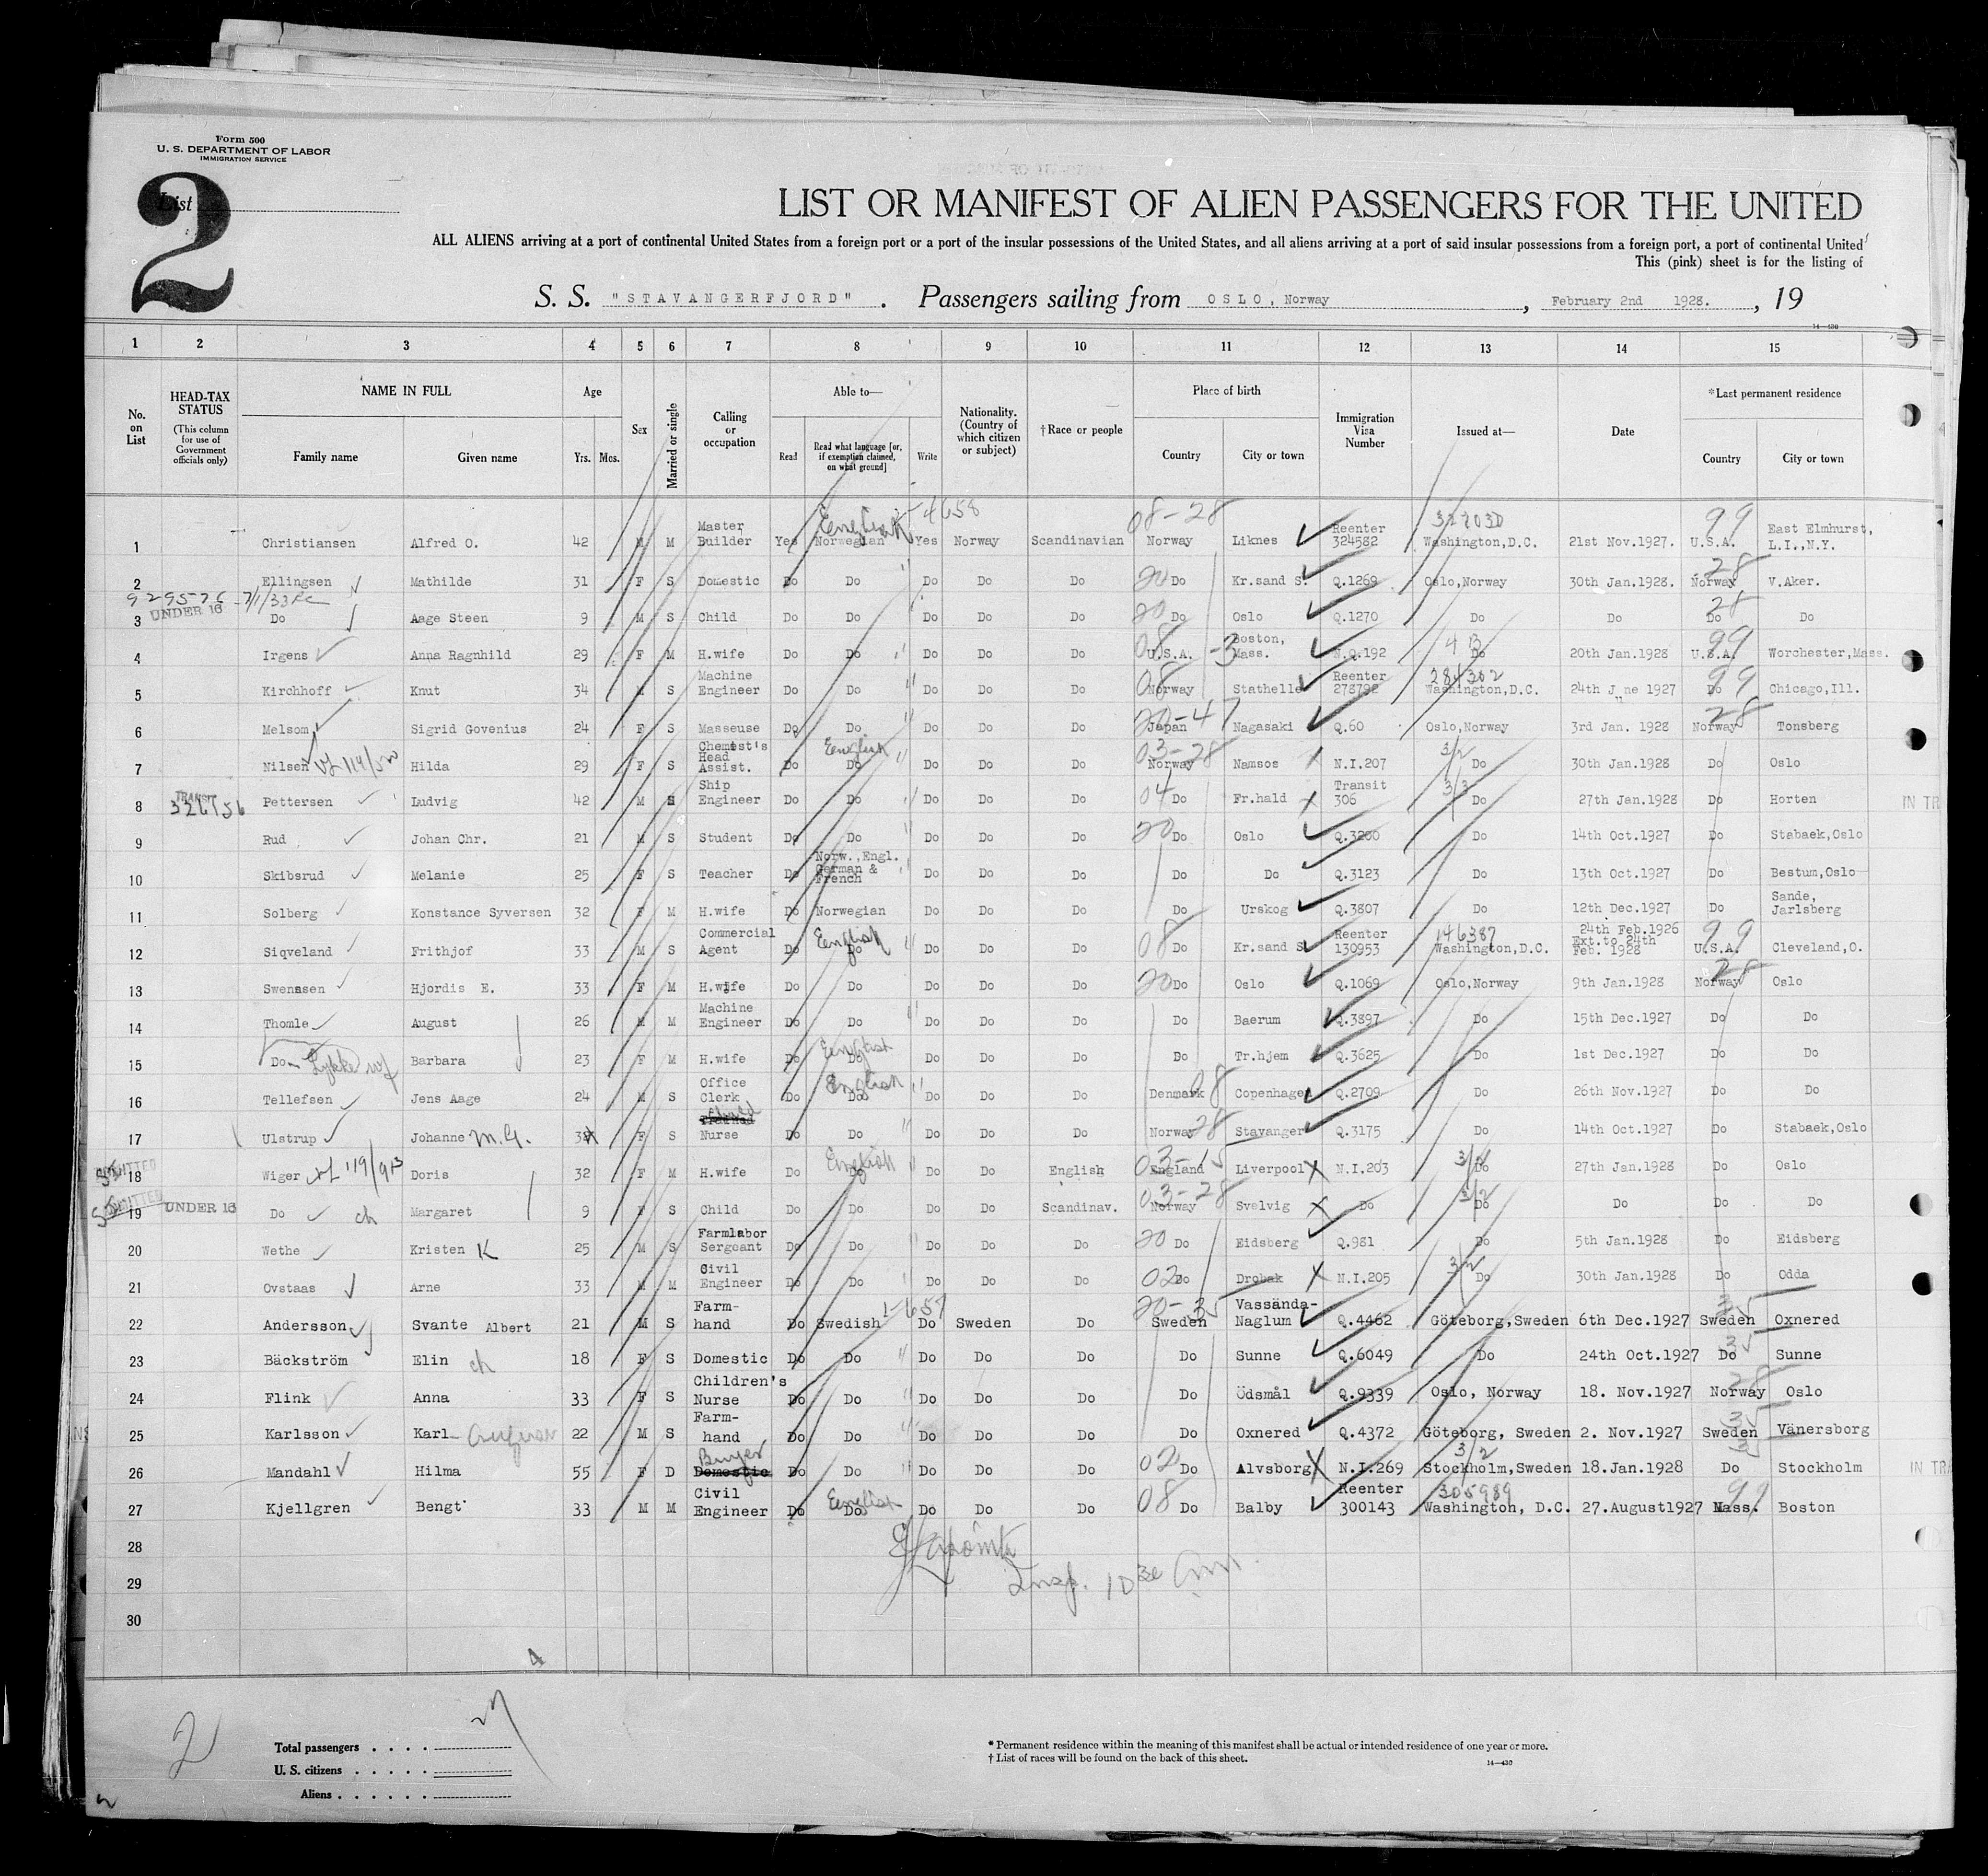 Form 500
U. S. DEPARTMENT OF LABOR
IMMIGRATION SERVICE
List
2
LIST OR MANIFEST OF ALIEN PASSENGERS FOR THE UNITED
ALL ALIENS arriving at a port of continental United States from a foreign port or a port of the insular possessions of the United States, and all aliens arriving at a port of said insular possessions from a foreign port, a port of continental United
This (pink) sheet is for the listing of
S. S. "STAVANGERFJORD". Passengers sailing from OSLO, Norway, February 2nd 1928., 19
14—430
1 2 3 4 5 6 7 8 9 10 11 12 13 14 15
No. on List
HEAD-TAX STATUS (This column for use of Government officials only)
NAME IN FULL
Family name Given name
Age
Yrs. Mos.
Sex
Married or single
Calling or occupation
Able to—
Read
Read what language [or, if exemption claimed, on what ground]
Write
Nationality. (Country of which citizen or subject)
†Race or people
Place of birth
Country City or town
Immigration Visa Number
Issued at—
Date
*Last permanent residence
Country City or town
1 Christiansen Alfred O. 42 M M Master Builder Yes Norwegian English Yes 4658 Norway Scandinavian 08-28 Norway Liknes Reenter 324582 Washington,D.C. 21st Nov.1927. 99 U.S.A. East Elmhurst, L.I.,N.Y.
2 Ellingsen Mathilde 31 F S Domestic Do Do Do Do Do 20 Do Kr.sand S. Q.1269 Oslo,Norway 30th Jan.1928. 28 Norway V.Aker.
929576 7/1/33
3 UNDER 16 Do Aage Steen 9 M S Child Do Do Do Do Do 20 Do Oslo Q.1270 Do Do 28 Do Do
4 Irgens Anna Ragnhild 29 F M H.wife Do Do Do Do Do 08-3 U.S.A. Boston, Mass. N.Q.192 4 B Do 20th Jan.1928 99 U.S.A. Worchester,Mass.
5 Kirchhoff Knut 34 M S Machine Engineer Do Do Do Do Do 08 Norway Stathelle Reenter 278792 284302 Washington,D.C. 24th June 1927 99 Do Chicago,Ill.
6 Melsom Sigrid Govenius 24 F S Masseuse Do Do Do Do Do 20-47 Japan Nagasaki Q.60 Oslo,Norway 3rd Jan. 1928 28 Norway Tonsberg
7 Nilsen Hilda 29 F S Chemist's Head Assist. Do Do English Do Do Do 03-28 Norway Namsos N.I.207 3/2 Do 30th Jan.1928 Do Oslo
8 TRANSIT Pettersen Ludvig 42 M S Ship Engineer Do Do Do Do Do 04 Do Fr.hald Transit 306 3/3 Do 27th Jan.1928 Do Horten IN TR
9 Rud Johan Chr. 21 M S Student Do Do Do Do Do 20 Do Oslo Q.3200 Do 14th Oct.1927 Do Stabaek,Oslo
10 Skibsrud Melanie 25 F S Teacher Do Norw.,Engl. German & French Do Do Do Do Do Q.3123 Do 13th Oct.1927 Do Bestum,Oslo
11 Solberg Konstance Syversen 32 F M H.wife Do Norwegian Do Do Do Do Urskog Q.3807 Do 12th Dec.1927 Do Sande, Jarlsberg
12 Siqveland Frithjof 33 M S Commercial Agent Do Do English Do Do Do 08 Do Kr.sand S. Reenter 130953 146387 Washington,D.C. 24th Feb.1926 Ext.to 24th Feb. 1928 99 U.S.A. Cleveland,O.
13 Swensen Hjordis E. 33 F M H.wife Do Do Do Do Do 20 Do Oslo Q.1069 Oslo,Norway 9th Jan.1928 28 Norway Oslo
14 Thomle August 26 M M Machine Engineer Do Do Do Do Do Do Baerum Q.3897 Do 15th Dec.1927 Do Do
15 Do Lykke wf Barbara 23 F M H.wife Do Do English Do Do Do Do Tr.hjem Q.3625 Do 1st Dec.1927 Do Do
16 Tellefsen Jens Aage 24 M S Office Clerk Do Do English Do Do Do Denmark 08 Copenhagen Q.2709 Do 26th Nov.1927 Do Do
17 Ulstrup Johanne M.G. F S Child Nurse Do Do Do Do Do Norway 28 Stavanger Q.3175 Do 14th Oct.1927 Do Stabaek,Oslo
18 ADMITTED Wiger Doris 32 F M H.wife Do Do English Do Do English 03-15 England Liverpool N.I.203 Do 27th Jan.1928 Do Oslo
19 ADMITTED UNDER 16 Do ch Margaret 9 F S Child Do Do Do Do Scandinav. 03-28 Norway Svelvig Do 3/2 Do Do Do Do
20 Wethe Kristen K 25 M S Farmlabor Sergeant Do Do Do Do Do 20 Do Eidsberg Q.981 Do 5th Jan.1928 Do Eidsberg
21 Ovstaas Arne 33 M M Civil Engineer Do Do Do Do Do 02 Do Drobak N.I.205 3/2 Do 30th Jan.1928 Do Odda
22 Andersson Svante Albert 21 M S Farm-hand Do Swedish Do Sweden Do 20-35 Sweden Vassända-Naglum Q.4462 Göteborg,Sweden 6th Dec.1927 35 Sweden Oxnered
23 Bäckström Elin ch 18 F S Domestic Do Do Do Do Do Do Sunne Q.6049 Do 24th Oct.1927 35 Do Sunne
24 Flink Anna 33 F S Children's Nurse Do Do Do Do Do Do Ödsmål Q.9339 Oslo, Norway 18. Nov.1927 28 Norway Oslo
25 Karlsson Karl 22 M S Farm-hand Do Do Do Do Do Do Oxnered Q.4372 Göteborg, Sweden 2. Nov.1927 35 Sweden Vänersborg
26 Mandahl Hilma 55 F D Domestic Buyer Do Do Do Do Do 02 Do Alvsborg N.I.269 3/2 Stockholm,Sweden 18.Jan.1928 35 Do Stockholm IN TRA
27 Kjellgren Bengt 33 M M Civil Engineer Do Do English Do Do Do 08 Do Balby Reenter 300143 305989 Washington, D.C. 27.August1927 99 Mass. Boston
28
29 Insp.
30
2
Total passengers . . . .
U. S. citizens . . . . .
Aliens . . . . . .
* Permanent residence within the meaning of this manifest shall be actual or intended residence of one year or more.
† List of races will be found on the back of this sheet.
14—430